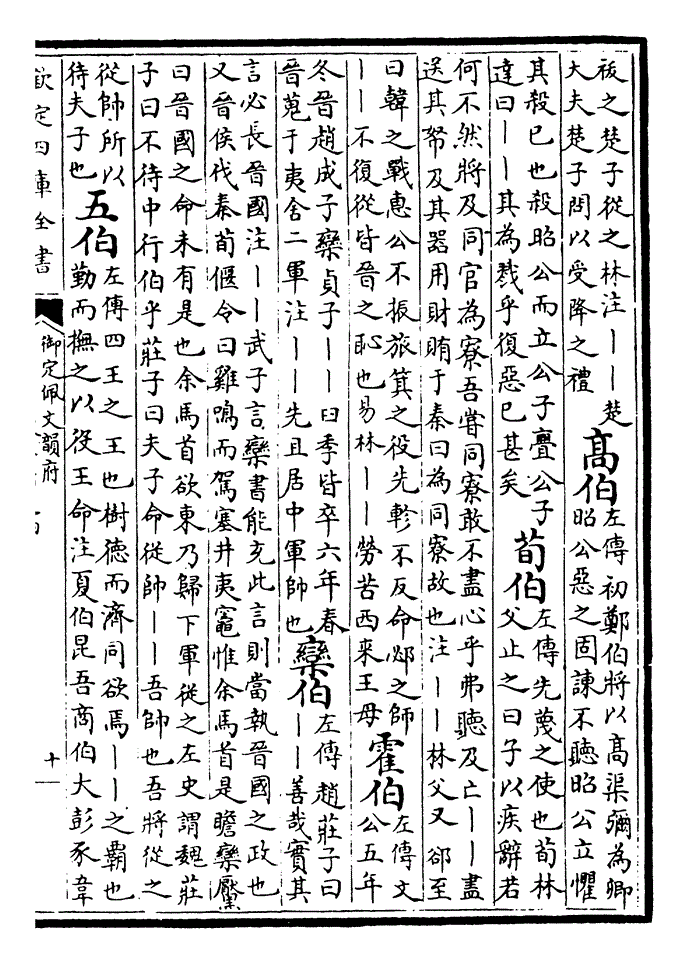 祓之楚子從之林注丨丨楚
大夫楚子問以受降之禮
高伯
左傳初鄭伯將以髙渠彌為卿
昭公惡之固諫不聽昭公立懼
其殺已也殺昭公而立公子亹公子
達曰丨丨其為戮乎復惡已甚矣
荀伯
左傳先蔑之使也荀林
父止之曰子以疾辭若
何不然將及同官為寮吾嘗同寮敢不盡心乎弗聽及亡丨丨盡
送其帑及其器用財賄于秦曰為同寮故也注丨丨林父又郤至
曰韓之戰惠公不振旅箕之役先軫不反命邲之師
丨丨不復從皆晉之恥也易林丨丨勞苦西来王母
霍伯
左傳文
公五年
冬晉趙成子欒貞子丨丨臼季皆卒六年春
晉蒐于夷舍二軍注丨丨先且居中軍帥也
欒伯
左傳趙莊子曰
丨丨善哉實其
言必長晉國注丨丨武子言欒書能充此言則當執晉國之政也
又晉侯伐秦荀偃令曰雞鳴而駕塞井夷竈惟余馬首是瞻欒黶
曰晉國之命未有是也余馬首欲東乃歸下軍從之左史謂魏莊
子曰不待中行伯乎莊子曰夫子命從帥丨丨吾帥也吾將從之
從帥所以
待夫子也
五伯
左傳四王之王也樹德而濟同欲焉丨丨之霸也
勤而撫之以役王命注夏伯昆吾商伯大彭豕韋
欽定四庫全書
御定佩文韻府
十一